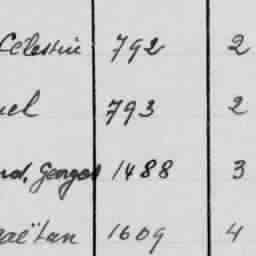 Célestin 792 2
uel 793 2
nd, Georges 1488 3
aëtan 1609 4